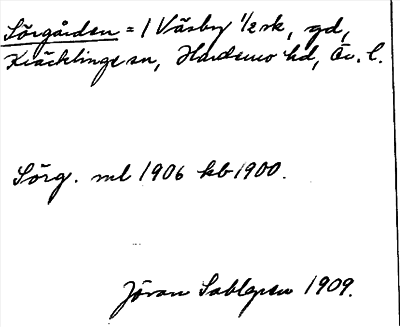 Sörgården = 1 Väsby 1/2 mk, gd,
Kräcklinge sn, Hardemo hd, Ör. l.
Sörg. ml 1906 kb 1900.
Jöran Sahlgren 1909.